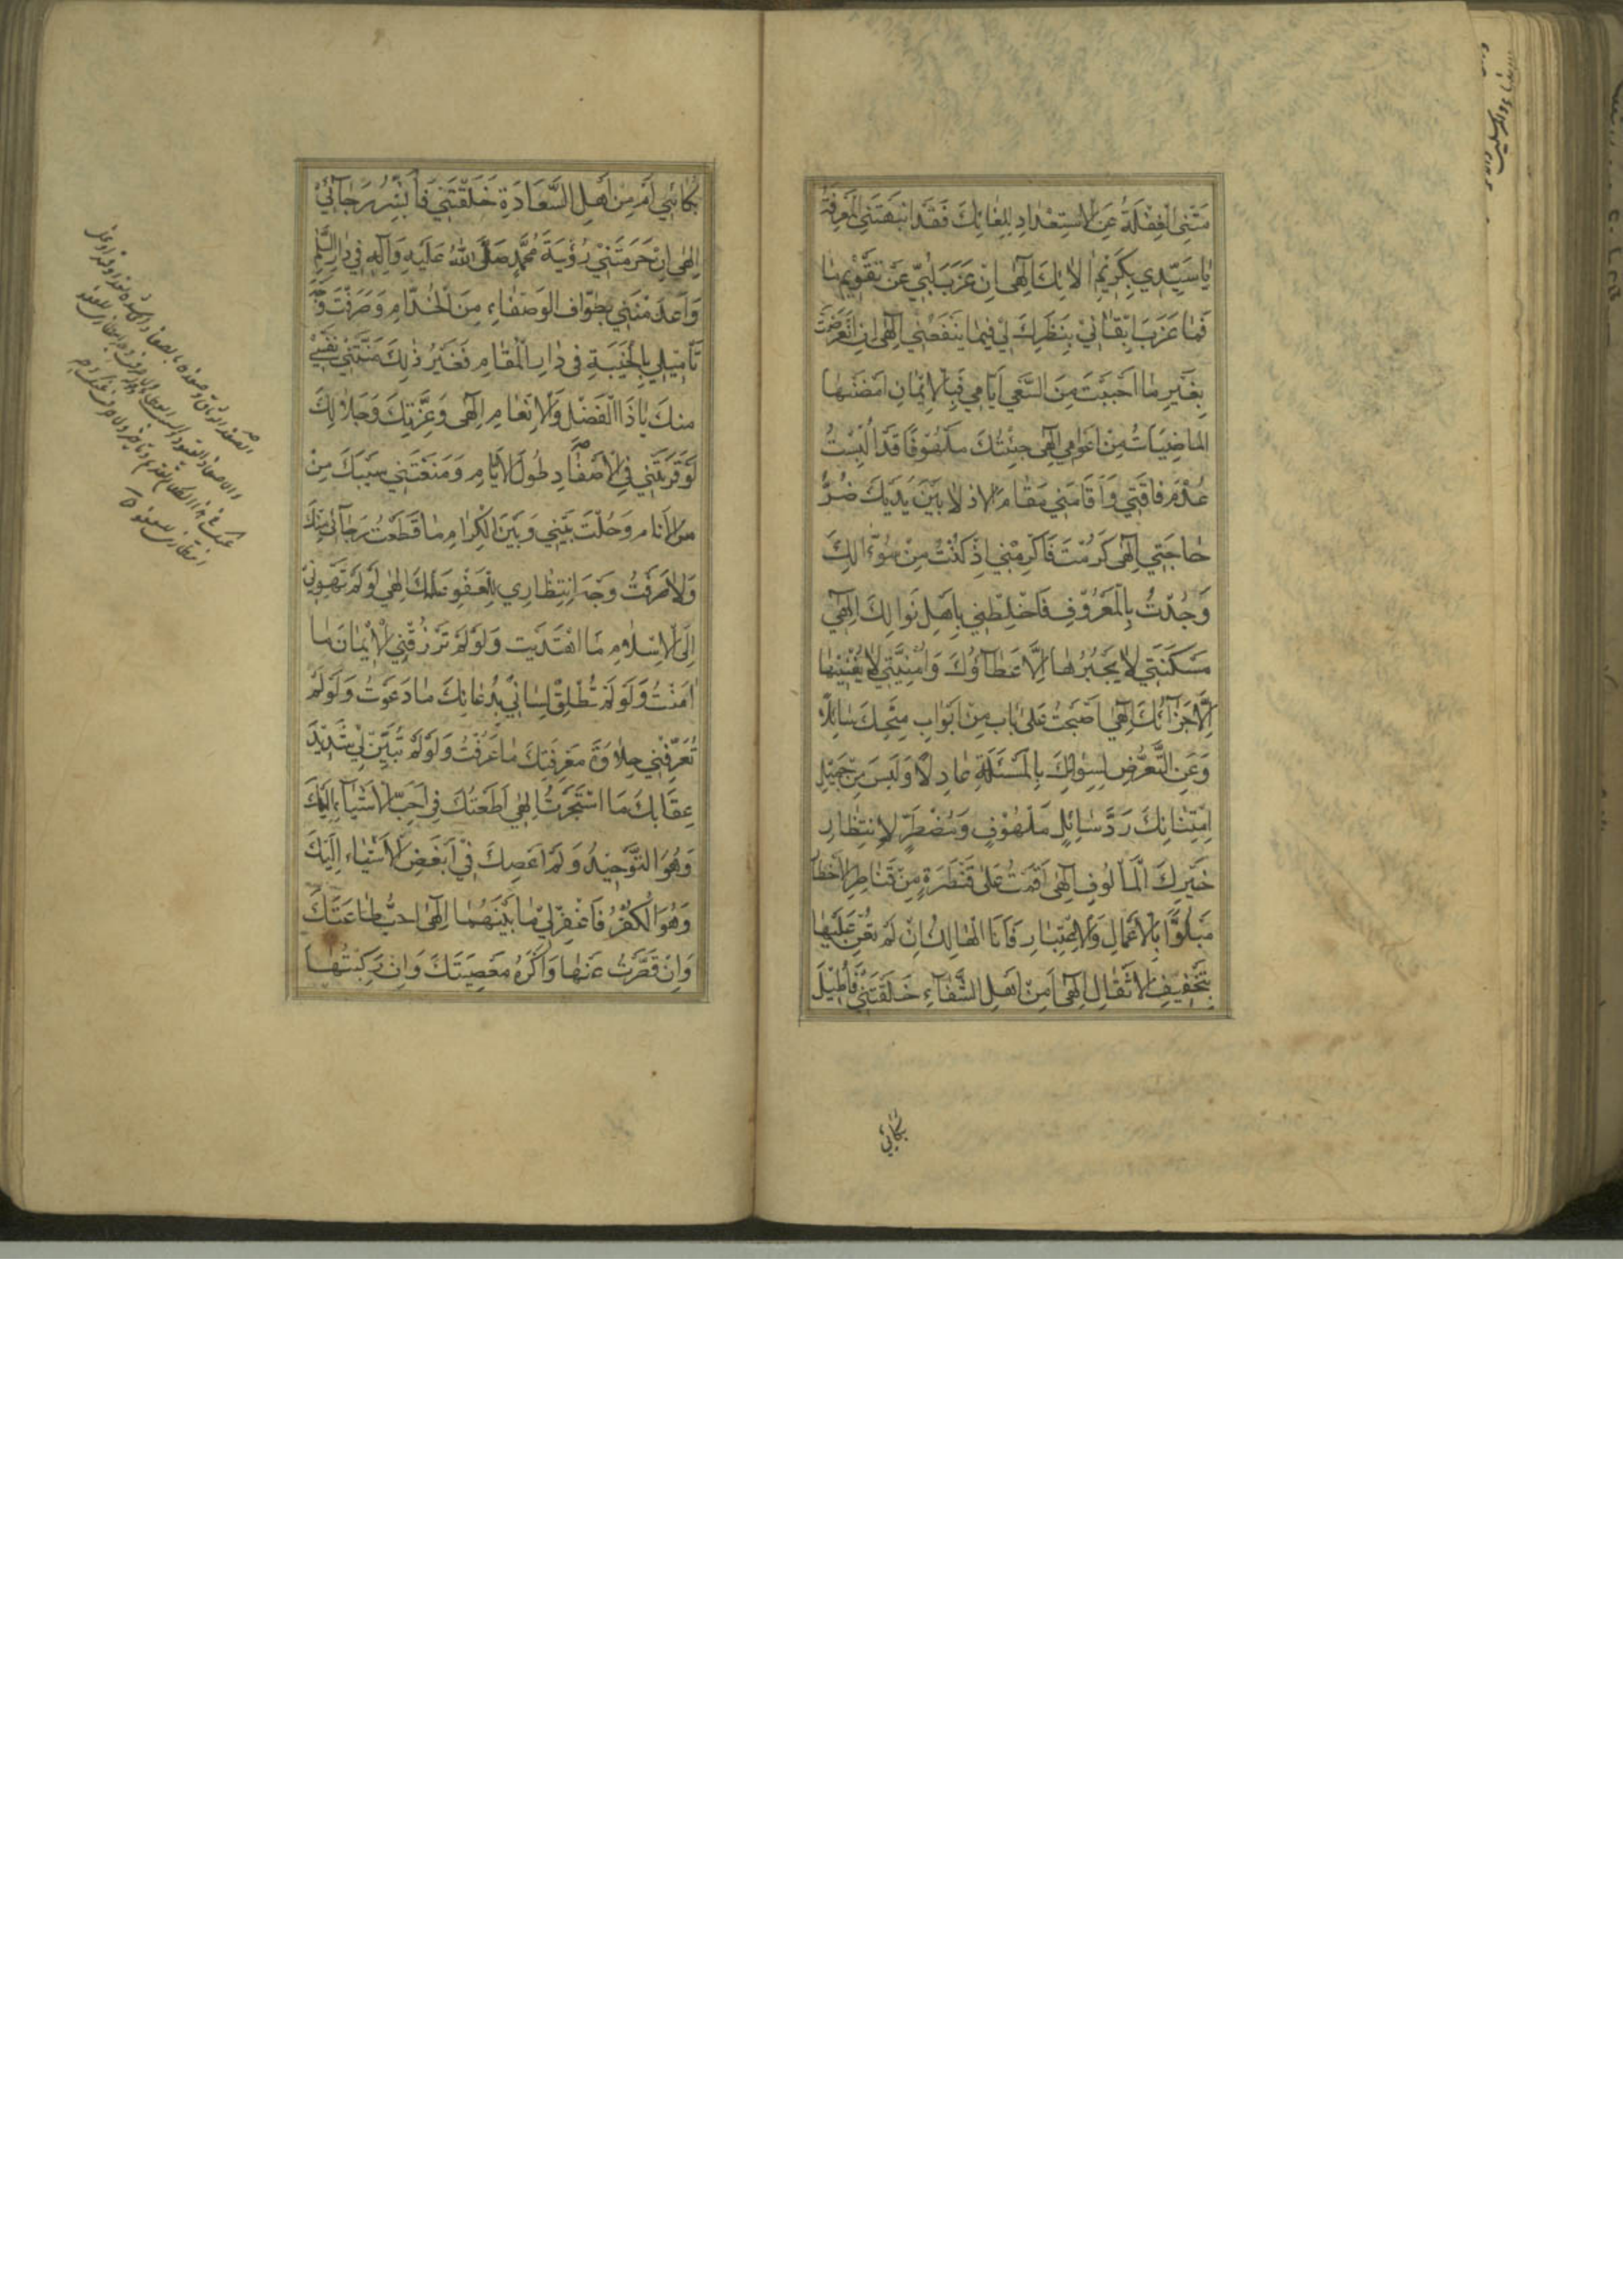 مَتْنِی الْغَفْلَةُ عَنِ الْاِسْتِعْدَادِ لِلِقَائِكَ فَقَدْ اَنْبَهَتْنِی الْمَعْرِفَةُ
یَا سَیِّدِی بِكَرِیْمِ اٰلَائِكَ اِلٰهِی اِنْ عَزَبَ لُبِّی عَنْ تَقْوِیْمِ مَا
فَمَا عَزَبَ اِیْقَانِیْ بِنَظَرِكَ لِیْ فِیْمَا یَنْفَعُنِی اِلٰهِی اِنِ انْقَرَضَتْ
بِغَیْرِ مَا اَحْبَبْتَ مِنَ السَّعْیِ اَیَّامِی فَبِالْاِیْمَانِ اَمْضَتْهَا
الْمَاضِیَاتُ مِنْ اَعْوَامِی اِلٰهِی جِئْتُكَ مَلْهُوْفًا قَدْ اُلْبِسْتُ
عُدْمَ فَاقَتِی وَاَقَامَنِی مَقَامَ الْاَذِلَّاءِ بَیْنَ یَدَیْكَ ضُرُّ
حَاجَتِی اِلٰهِی كَرُمْتَ فَاَكْرِمْنِی اِذْ كُنْتُ مِنْ سُؤَّالِكَ
وَجُدْتَ بِالْمَعْرُوْفِ فَاخْلِطْنِی بِاَهْلِ نَوَالِكَ اِلٰهِی
مَسْكَنَتِی لَا یَجْبُرُهَا اِلَّا عَطَآؤُكَ وَاُمْنِیَّتِی لَا یُغْنِیْهَا
اِلَّا جَزَآئُكَ اِلٰهِی اَصْبَحْتُ عَلٰی بَابٍ مِنْ اَبْوَابِ مِنَحِكَ سَائِلًا
وَعَنِ التَّعَرُّضِ لِسِوَائِكَ بِالْمَسْئَلَةِ عَادِلًا وَلَیْسَ مِنْ جَمِیْلِ
اِمْتِنَانِكَ رَدُّ سَائِلٍ مَلْهُوْفٍ وَمُضْطَرٍّ لِاِنْتِظَارِ
خَیْرِكَ الْمَاْلُوْفِ اِلٰهِی اَقَمْتُ عَلٰی قَنْطَرَةٍ مِنْ قَنَاطِرِ الْاَخْطَارِ
مَبْلُوًّا بِالْاَعْمَالِ وَالْاِعْتِبَارِ فَاَنَا الْهَالِكُ اِنْ لَمْ تُعِنْ عَلَیْهَا
بِتَخْفِیْفِ الْاَثْقَالِ اِلٰهِی اَمِنْ اَهْلِ الشَّقَآءِ خَلَقْتَنِی فَاُطِیْلَ
بُكَائِی
بُكَائِی اَمْ مِنْ اَهْلِ السَّعَادَةِ خَلَقْتَنِی فَاُبَشِّرَ رَجَآئِیْ
اِلٰهِی اِنْ حَرَمْتَنِیْ رُؤْیَةَ مُحَمَّدٍ صَلَّی اللهُ عَلَیْهِ وَآلِهِ فِیْ دَارِ السَّلٰمِ
وَاَعْدَمْتَنِی تَطْوَافَ الْوُصَفَاءِ مِنَ الْخُدَّامِ وَصَرَفْتَ وَجْهَ
تَاْمِیْلِی بِالْخَیْبَةِ فِی دَارِ الْمُقَامِ فَغَیْرُ ذٰلِكَ مَنَّتْنِیْ نَفْسِیْ
مِنْكَ یَا ذَا الْفَضْلِ وَالْاِنْعَامِ اِلٰهِی وَعِزَّتِكَ وَجَلَالِكَ
لَوْ قَرَنْتَنِی فِی الْاَصْفَادِ طُوْلَ الْاَیَّامِ وَمَنَعْتَنِی سَیْبَكَ مِنْ
بَیْنِ الْاَنَامِ وَحُلْتَ بَیْنِی وَبَیْنَ الْكِرَامِ مَا قَطَعْتُ رَجَآئِی مِنْكَ
وَلَا صَرَفْتُ وَجْهَ اِنْتِظَارِی لِلْعَفْوِ عَنْكَ اِلٰهِی لَوْ لَمْ تَهْدِنِیْ
اِلَی الْاِسْلَامِ مَا اهْتَدَیْتُ وَلَوْ لَمْ تَرْزُقْنِی الْاِیْمَانَ مَا
اٰمَنْتُ وَلَوْ لَمْ تُطْلِقْ لِسَانِیْ بِدُعَائِكَ مَا دَعَوْتُ وَلَوْ لَمْ
تُعَرِّفْنِی حَلَاوَةَ مَعْرِفَتِكَ مَا عَرَفْتُ وَلَوْ لَمْ تُبَیِّنْ لِیْ شَدِیْدَ
عِقَابِكَ مَا اسْتَجَرْتُ اِلٰهِی اَطَعْتُكَ فِیْ اَحَبِّ الْاَشْیَآءِ اِلَیْكَ
وَهُوَ التَّوْحِیْدُ وَلَمْ اَعْصِكَ فِیْ اَبْغَضِ الْاَشْیَاءِ اِلَیْكَ
وَهُوَ الْكُفْرُ فَاغْفِرْ لِیْ مَا بَیْنَهُمَا اِلٰهِی اُحِبُّ طَاعَتَكَ
وَاِنْ قَصُرْتُ عَنْهَا وَاَكْرَهُ مَعْصِیَتَكَ وَاِنْ رَكِبْتُهَا